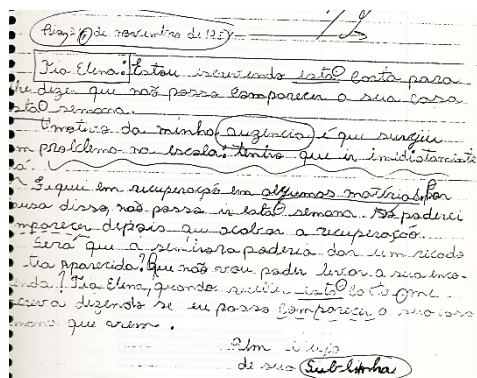 de novembro de 19
Tia Elena: Estou iscrevendo esta Carta para
he dizer que não posso Comparecer a sua casa
sta semana.
motivo da minha auzencia é que surgiu
m problema na escola: tenho que ir imidiatamente
lá.
Fiquei em recuperação em algumas matérias. Por
ausa disso, não posso ir esta semana. Só poderei
mparecer depois que acabar a recuperação.
Será que a senhora poderia dar um recado
tia Aparecida? Que não vou poder levar a sua enco-
enda? Tia Elena, quando receber esta Carta me
screva dizendo se eu posso Comparecer a sua casa
mana que vem.
Um
de sua Sublinha